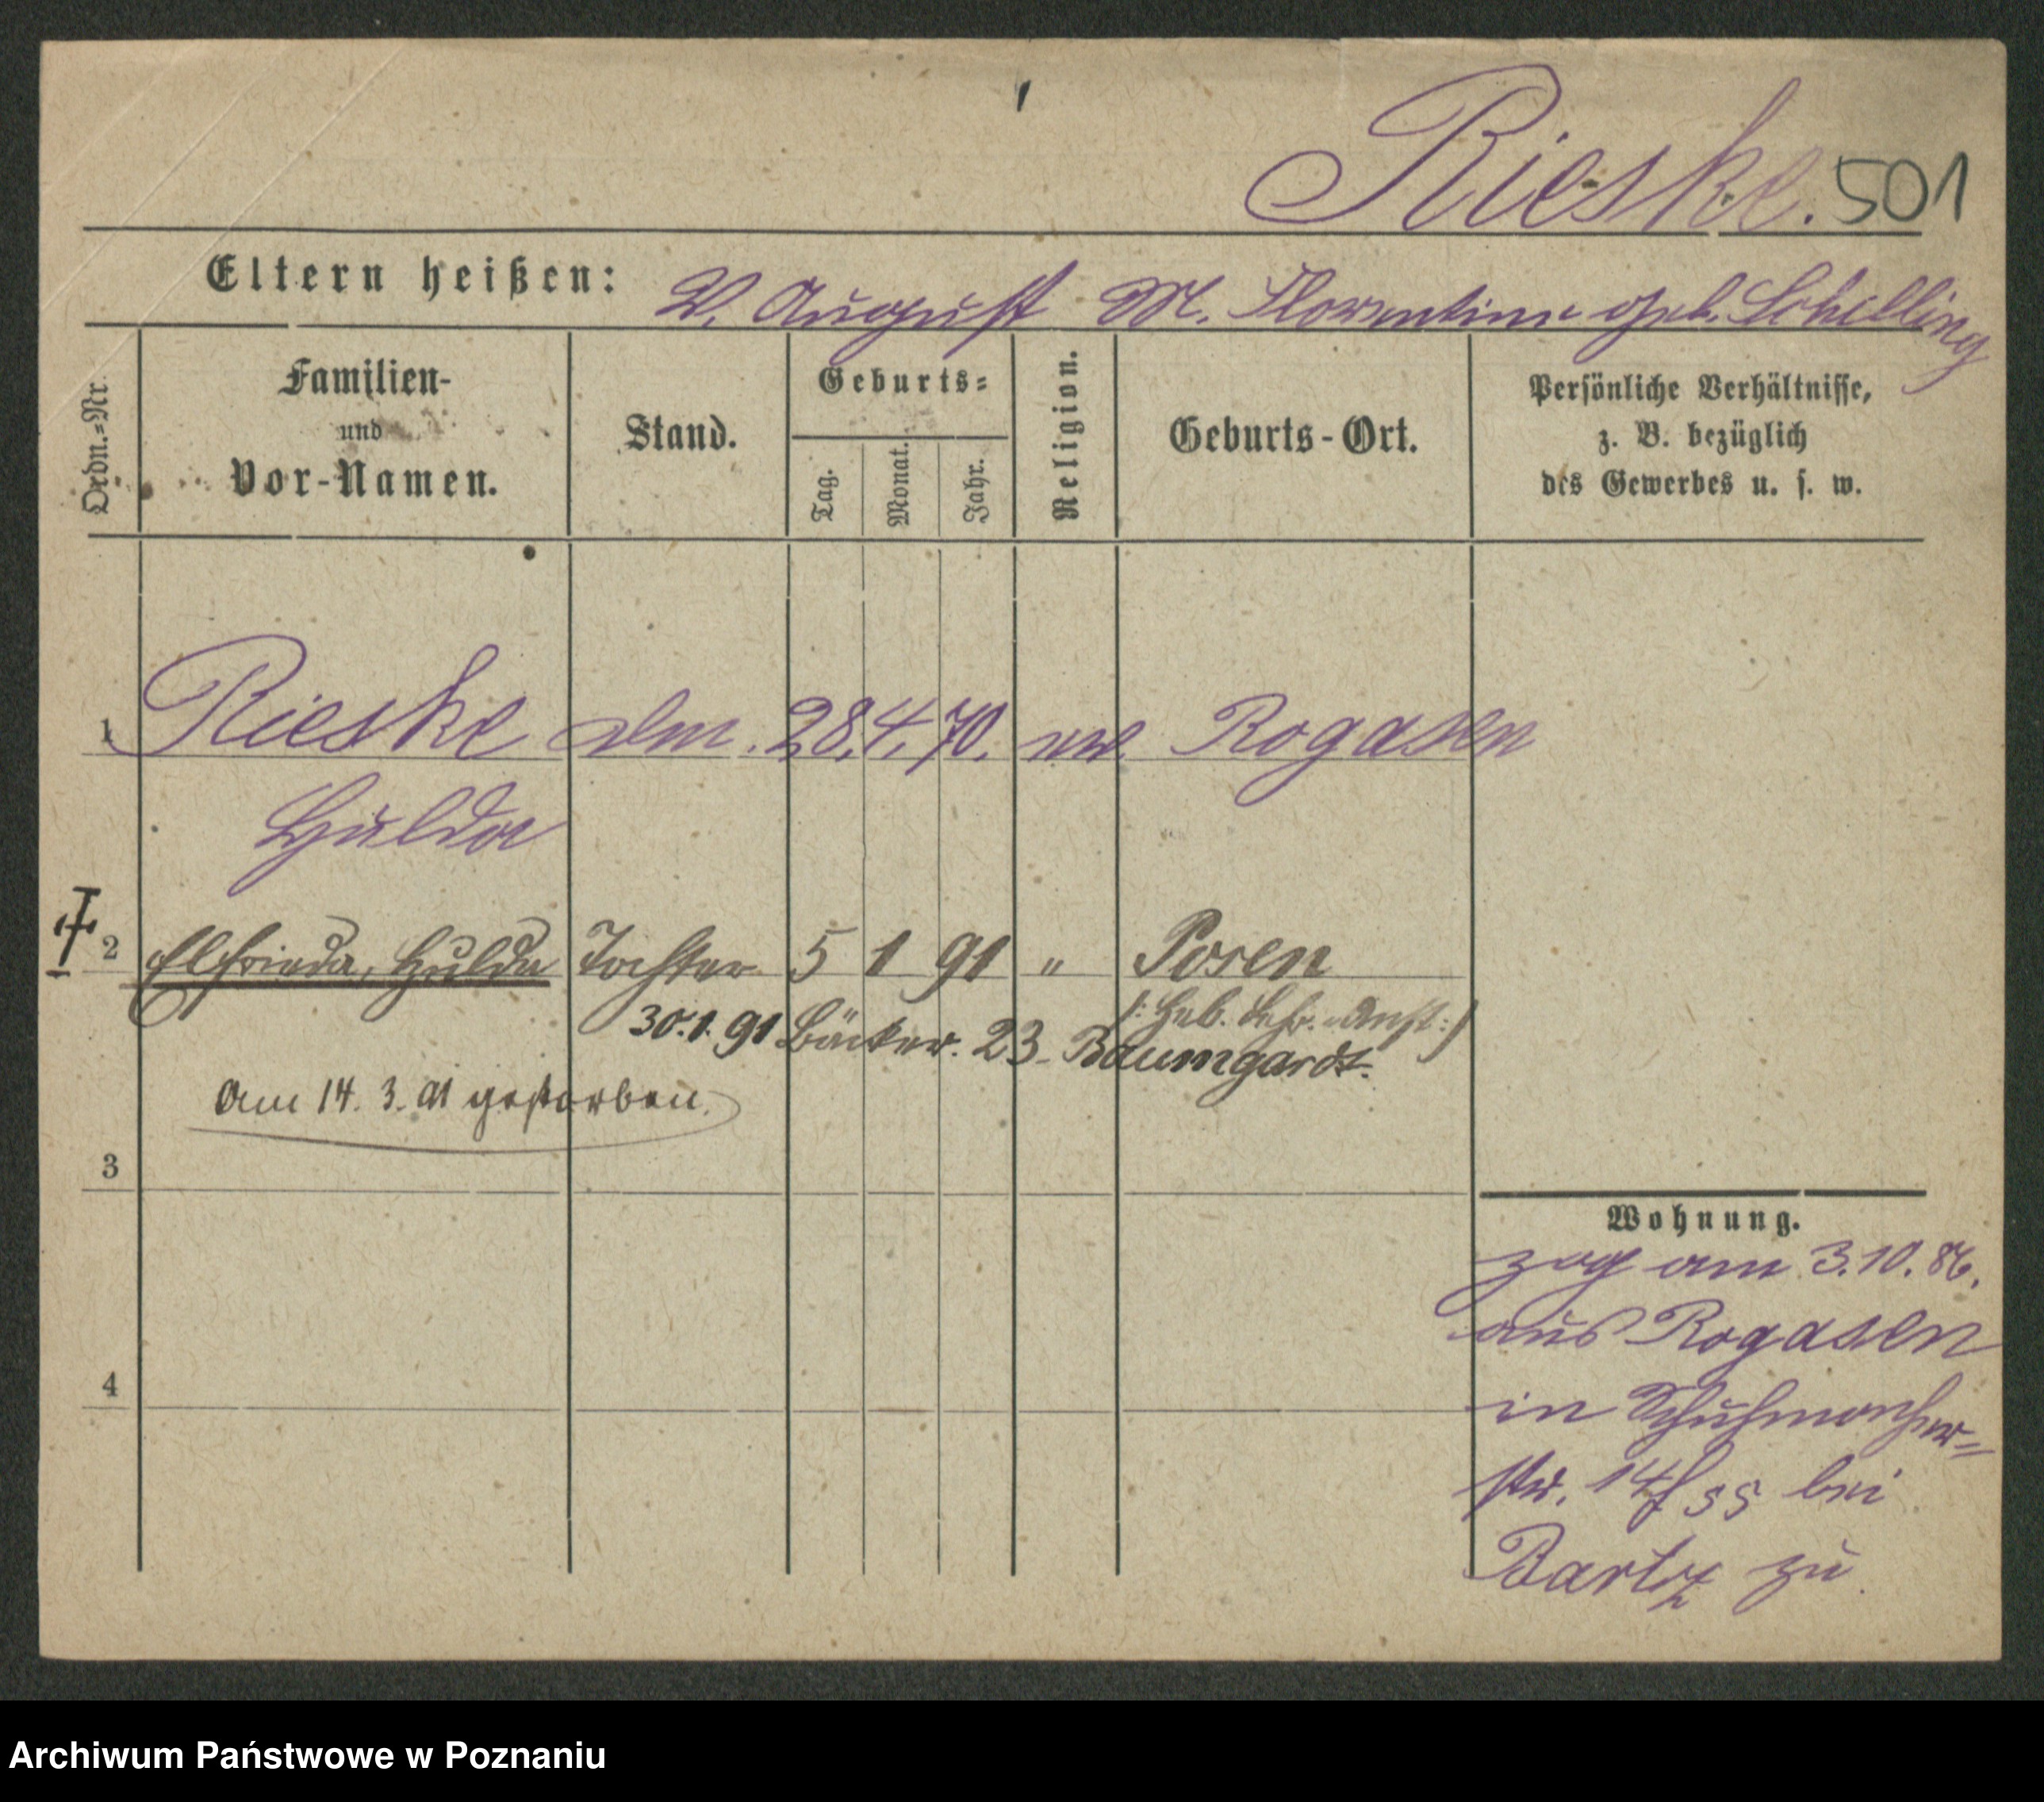 Rieske. 501
Eltern heißen: V. August M. Florentine geb. Schilling
Ordn.=Nr.
Familien-
und
Vor-Namen.
Stand.
Geburts=
Tag.
Monat.
Jahr.
Religion.
Geburts-Ort.
Persönliche Verhältnisse,
z. B. bezüglich
des Gewerbes u. s. w.
1 Rieske 28. 4. 70. ev. Rogasen
Hulda
2 Elfrieda, Hulda Tochter 5 1 91 " Posen
/: Heb. Lehr. Anst :/
30.1.91 Bäcker. 23 Baumgardt.
Am 14. 3. 91 gestorben.
3
4
Wohnung.
zog am 3.10.86.
aus Rogasen
in Schuhmacher=
str. 14 bei
Bartz zu
Archiwum Państwowe w Poznaniu